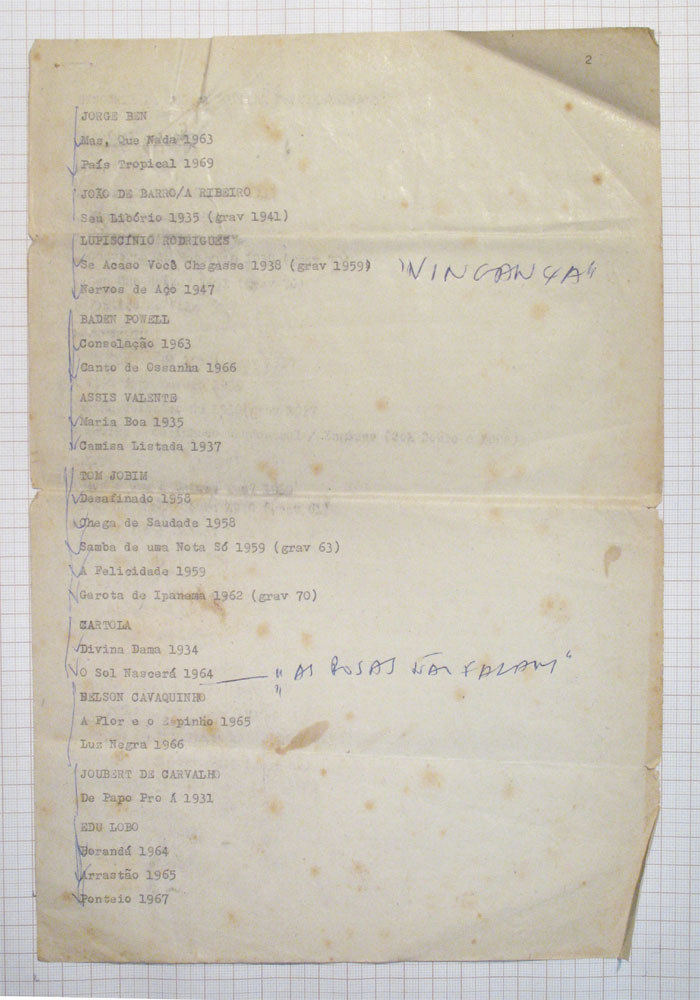 2
JORGE BEN
Mas, Que Nada 1963
País Tropical 1969
JOÃO DE BARRO/A RIBEIRO
Seu Libório 1935 (grav 1941)
LUPISCÍNIO RODRIGUES
Se Acaso Você Chegasse 1938 (grav 1959) "VINGANÇA"
Nervos de Aço 1947
BADEN POWELL
Consolação 1963
Canto de Ossanha 1966
ASSIS VALENTE
Maria Boa 1935
Camisa Listada 1937
TOM JOBIM
Desafinado 1958
Chega de Saudade 1958
Samba de uma Nota Só 1959 (grav 63)
A Felicidade 1959
Garota de Ipanema 1962 (grav 70)
CARTOLA
Divina Dama 1934
O Sol Nascerá 1964 "AS ROSAS NÃO FALAM"
NELSON CAVAQUINHO
A Flor e o Espinho 1965
Luz Negra 1966
JOUBERT DE CARVALHO
De Papo Pro Á 1931
EDU LOBO
Borandá 1964
Arrastão 1965
Ponteio 1967